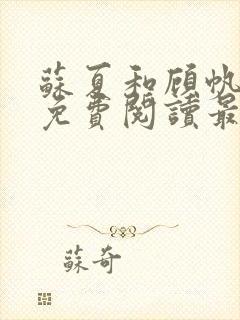 蘇夏和顧帆
免費閱讀最
蘇奇